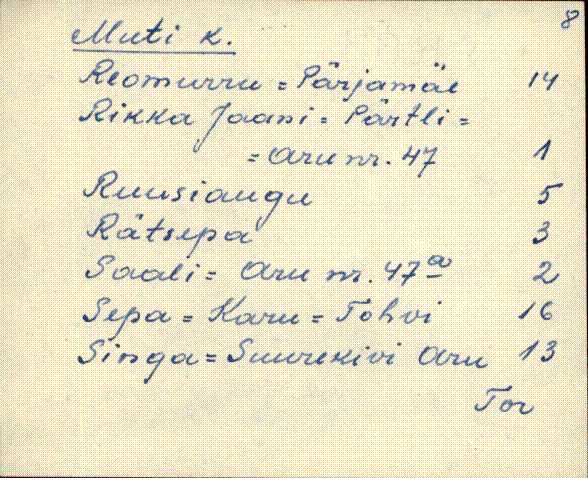 8
Muti k.
Reomurru = Pärjamäe 14
Rikka Jaani = Pärtli =
= Aru nr. 47 1
Ruusiaugu 5
Rätsepa 3
Saali = Aru nr. 47a 2
Sepa = Karu = Tohvi 16
Singa = Suurekivi Aru 13
Tor